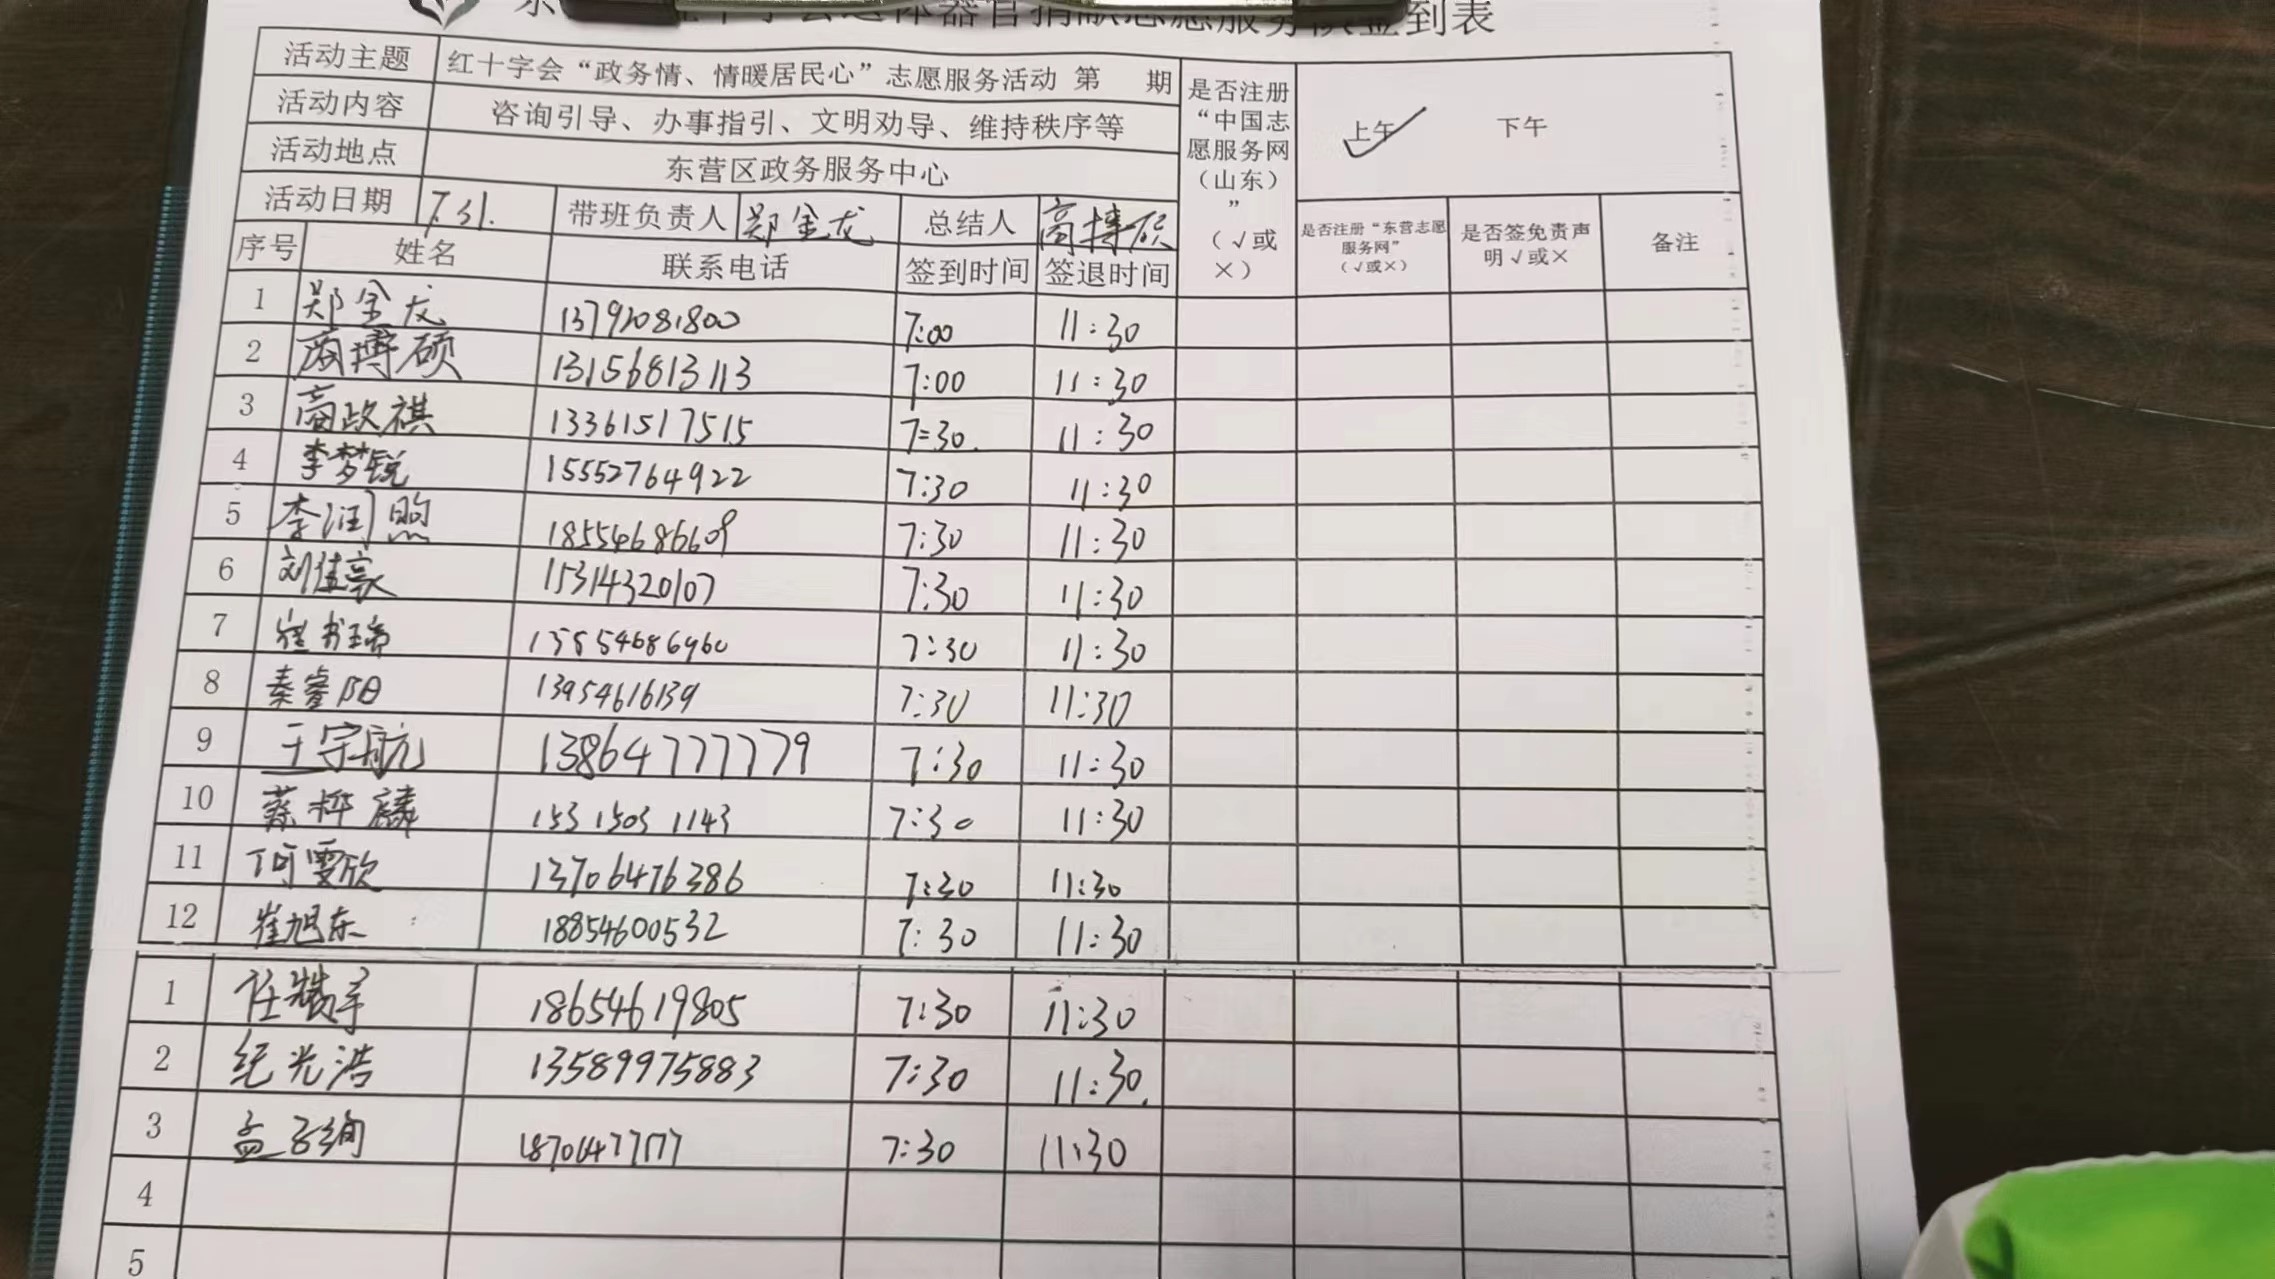 会遗体器官捐献志愿服务队签到表
活动主题 红十字会“政务情、情暖居民心”志愿服务活动 第 期 是否注册“中国志愿服务网(山东)”(√或×) 上午 ✓ 下午
活动内容 咨询引导、办事指引、文明劝导、维持秩序等
活动地点 东营区政务服务中心
活动日期 7.31. 带班负责人 郑金龙 总结人 高博硕 是否注册“东营志愿服务网”(√或×) 是否签免责声明√或× 备注
序号 姓名 联系电话 签到时间 签退时间
1 郑金龙 13792081800 7:00 11:30
2 高博硕 13156813113 7:00 11:30
3 高政祺 13361517515 7:30. 11:30
4 李梦锐 15552764922 7:30 11:30
5 李润煦 18554686609 7:30 11:30
6 刘佳豪 15314320107 7:30 11:30
7 崔书瑞 7:30 11:30
8 秦睿阳 13954616139 7:30 11:30
9 王宇航 13864777779 7:30 11:30
10 蔡梓麟 15315031143 7:30 11:30
11 何雯欣 13706476386 7:30 11:30
12 崔旭东 18854600532 7:30 11:30
1 任 18654619805 7:30 11:30
2 纪光浩 13589975883 7:30 11:30.
3 孟子绚 7:30 11:30
4
5